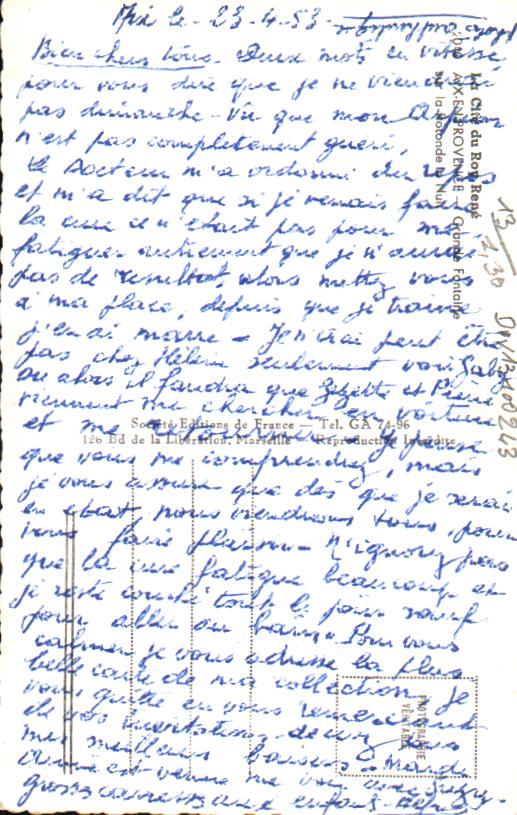 Aix le - 23-4-53
Bien chers tous. Deux mots en vitesse
pour vous dire que je ne viendrai
pas dimanche. Vu que mon
n'est pas complètement guéri,
le docteur m'a ordonné du repos
et m'a dit que si je venais faire
la cure ce n'était pas pour me
fatiguer autrement que je n'aurais
pas de résultat, alors mettez vous
à ma place, depuis que je traine
j'en ai marre - Je n'irai peut être
pas chez Hélène seulement voir
ou alors il faudra que et
viennent me chercher en voiture
et me Je pense
que vous me comprendrez, mais
je vous assure que dès que je serai
en état nous viendrons tous, pour
vous faire plaisir - N'ignorez pas
que la cure fatigue beaucoup et
je reste couché tout le jour sauf
pour aller au bains. Pour vous
calmer je vous adresse la plus
belle carte de ma collection, je
vous quitte en vous remerciant
de vos invitations.
mes meilleurs baisers - Mardi
est venue me voir avec
grosses caresses aux enfants
La Cité du Roy René
AIX-EN-PROVENCE - Grande Fontaine
sur la Rotonde la Nuit
13
1,30
Société Editions de France — Tel. GA 74-96
126 Bd de la Libération, Marseille — Reproduction Interdite
PHOTOGRAPHIE
VÉRITABLE